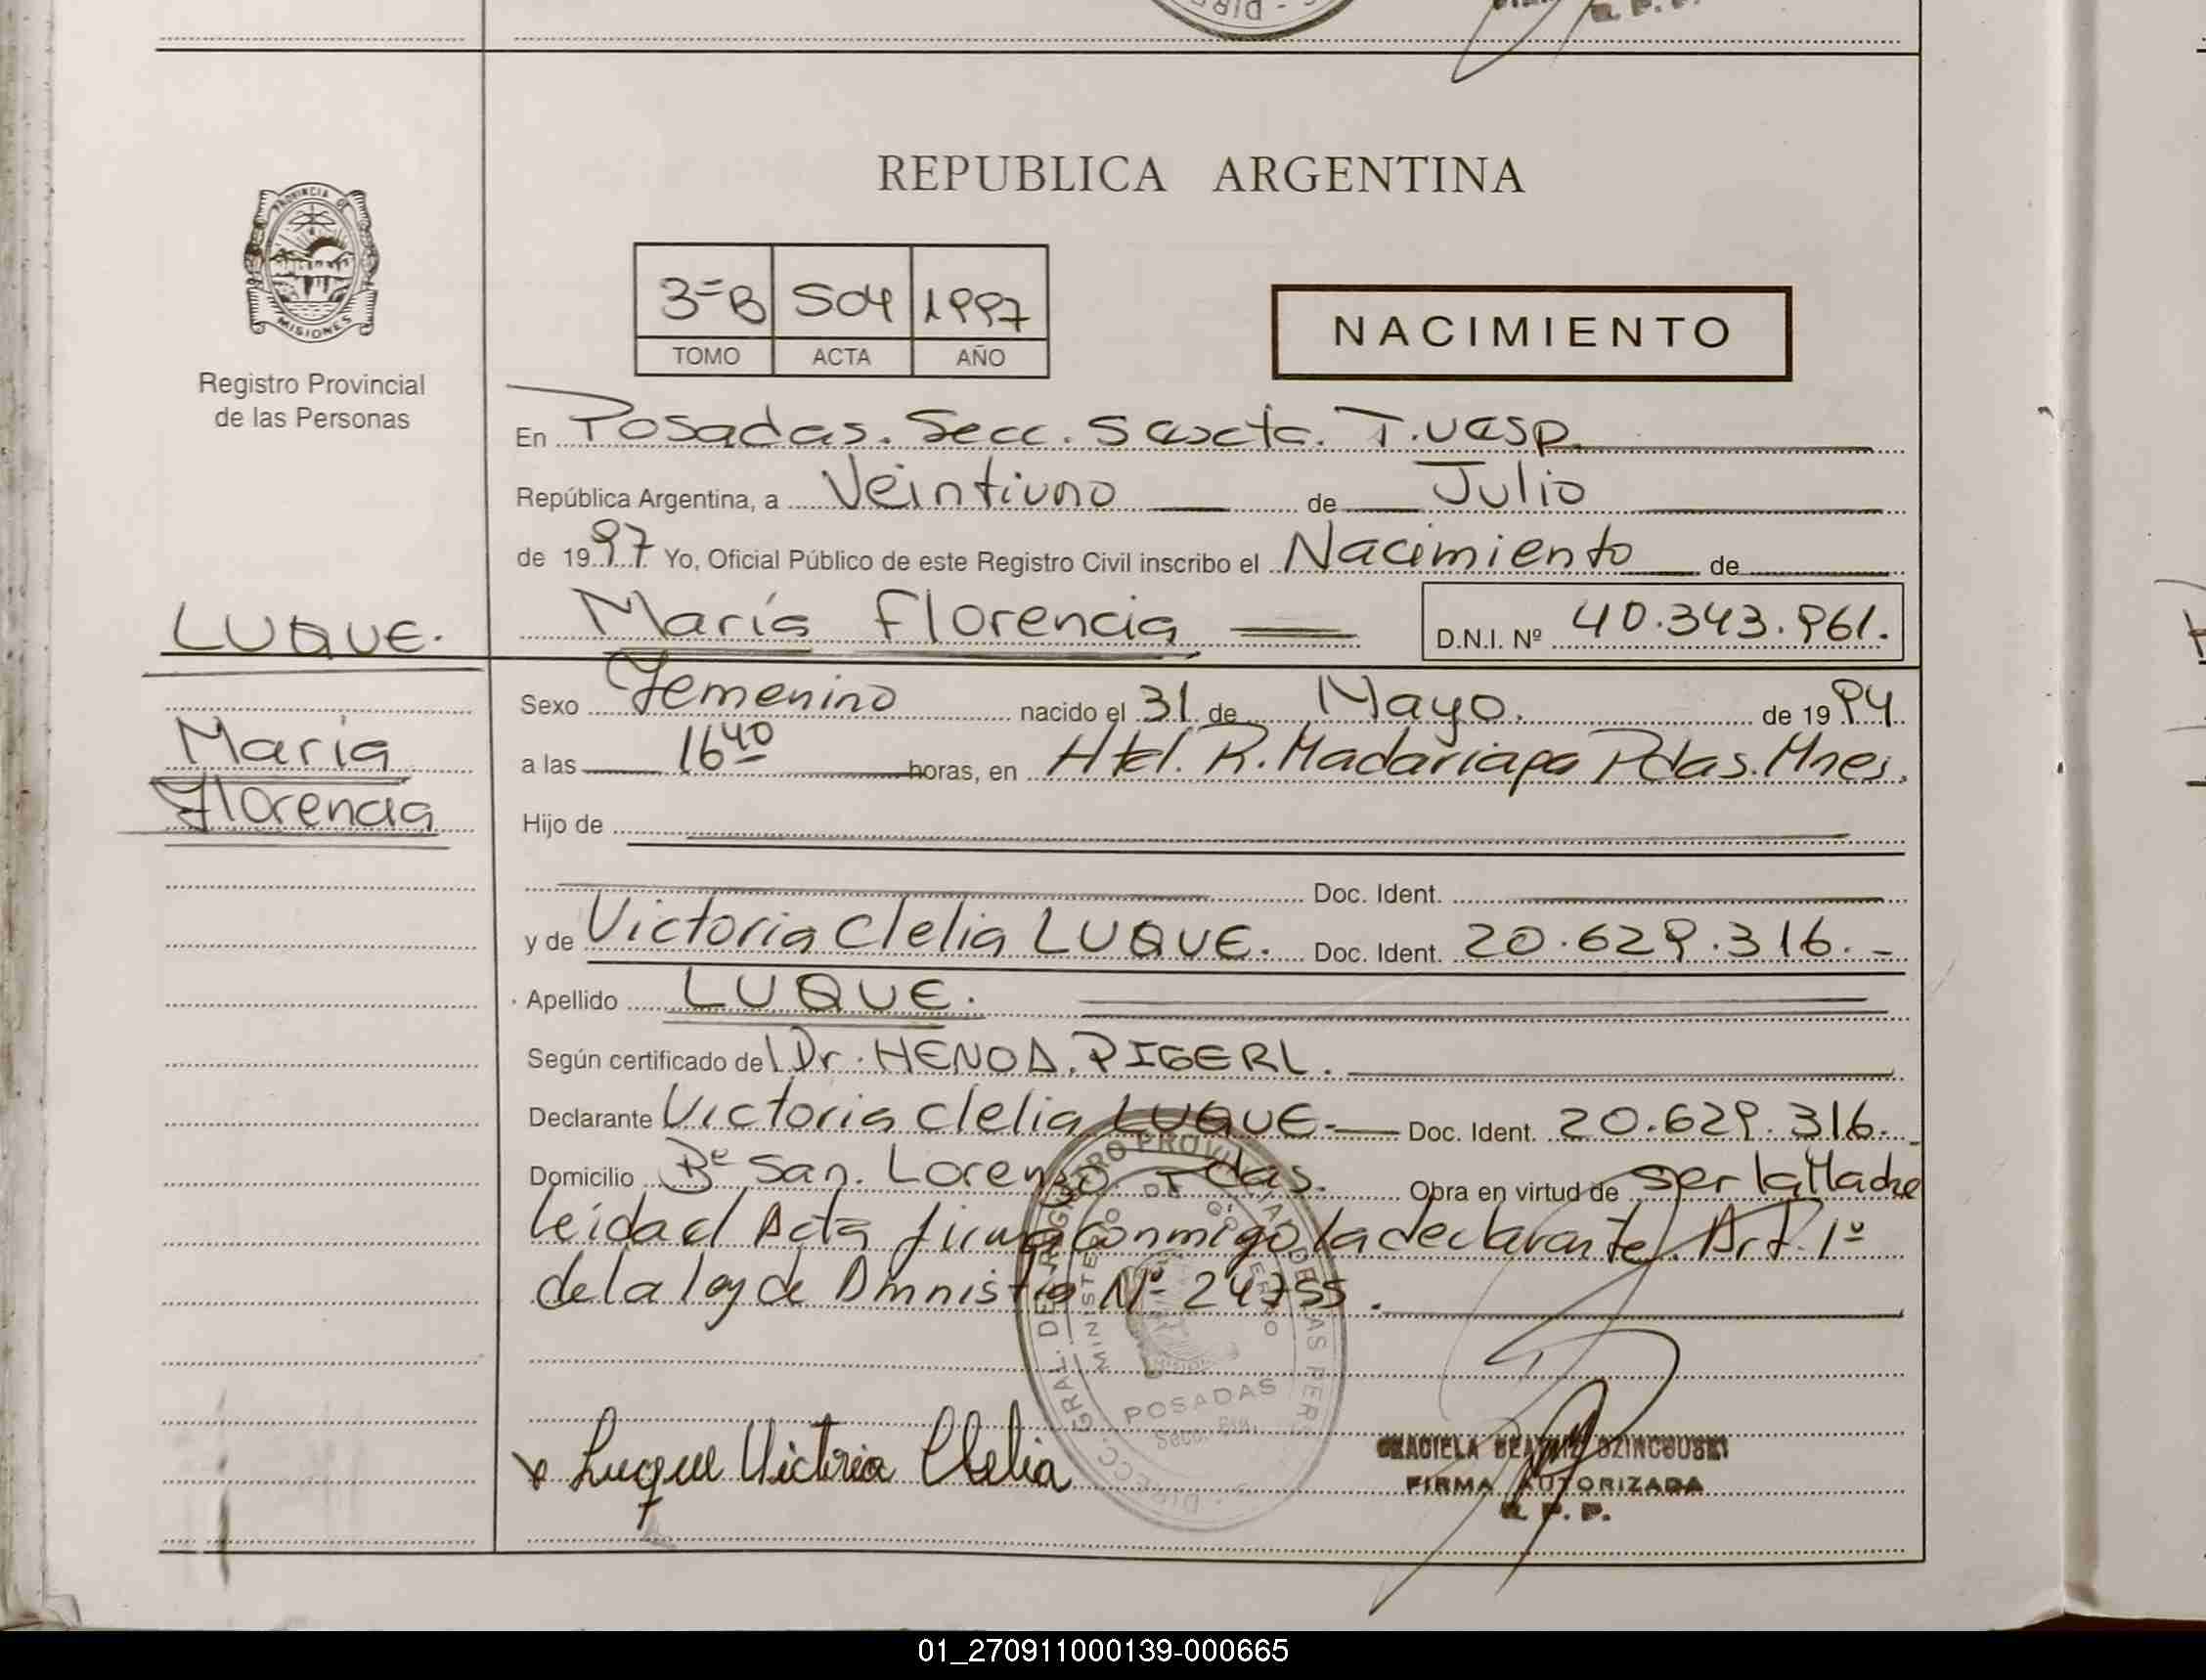 REPUBLICA ARGENTINA
PROVINCIA DE
MISIONES
Registro Provincial
de las Personas
3=B 504 1997
TOMO ACTA AÑO
NACIMIENTO
En Posadas. Secc. Sexcta. T.
República Argentina, a Veintiuno de Julio
de 1997 Yo, Oficial Público de este Registro Civil inscribo el Nacimiento de
LUQUE.
María Florencia D.N.I. Nº 40.343.961.
Sexo Femenino nacido el 31 de Mayo. de 1994
María
a las 16 40 horas, en Htal. R. Madariaga Pdas. Mnes.
Florencia
Hijo de
Doc. Ident.
y de Victoria Clelia LUQUE. Doc. Ident. 20.629.316.-
Apellido LUQUE.
Según certificado del Dr. PIGERL.
Declarante Victoria Clelia LUQUE.- Doc. Ident. 20.629.316.
Domicilio Bº San. Lorenzo Pdas. Obra en virtud de ser la Madre
leida el Acta firma conmigo la declarante. Art. 1º
de la ley de Amnistia Nº 24755.
DIRECC. GRAL. DEL REGISTRO PROVINCIAL DE LAS PER
MINISTERIO DE GOBIERNO
MISIONES
POSADAS
Luque Victoria Clelia
GRACIELA BEATRIZ
FIRMA AUTORIZADA
R. P. P.
01_270911000139-000665